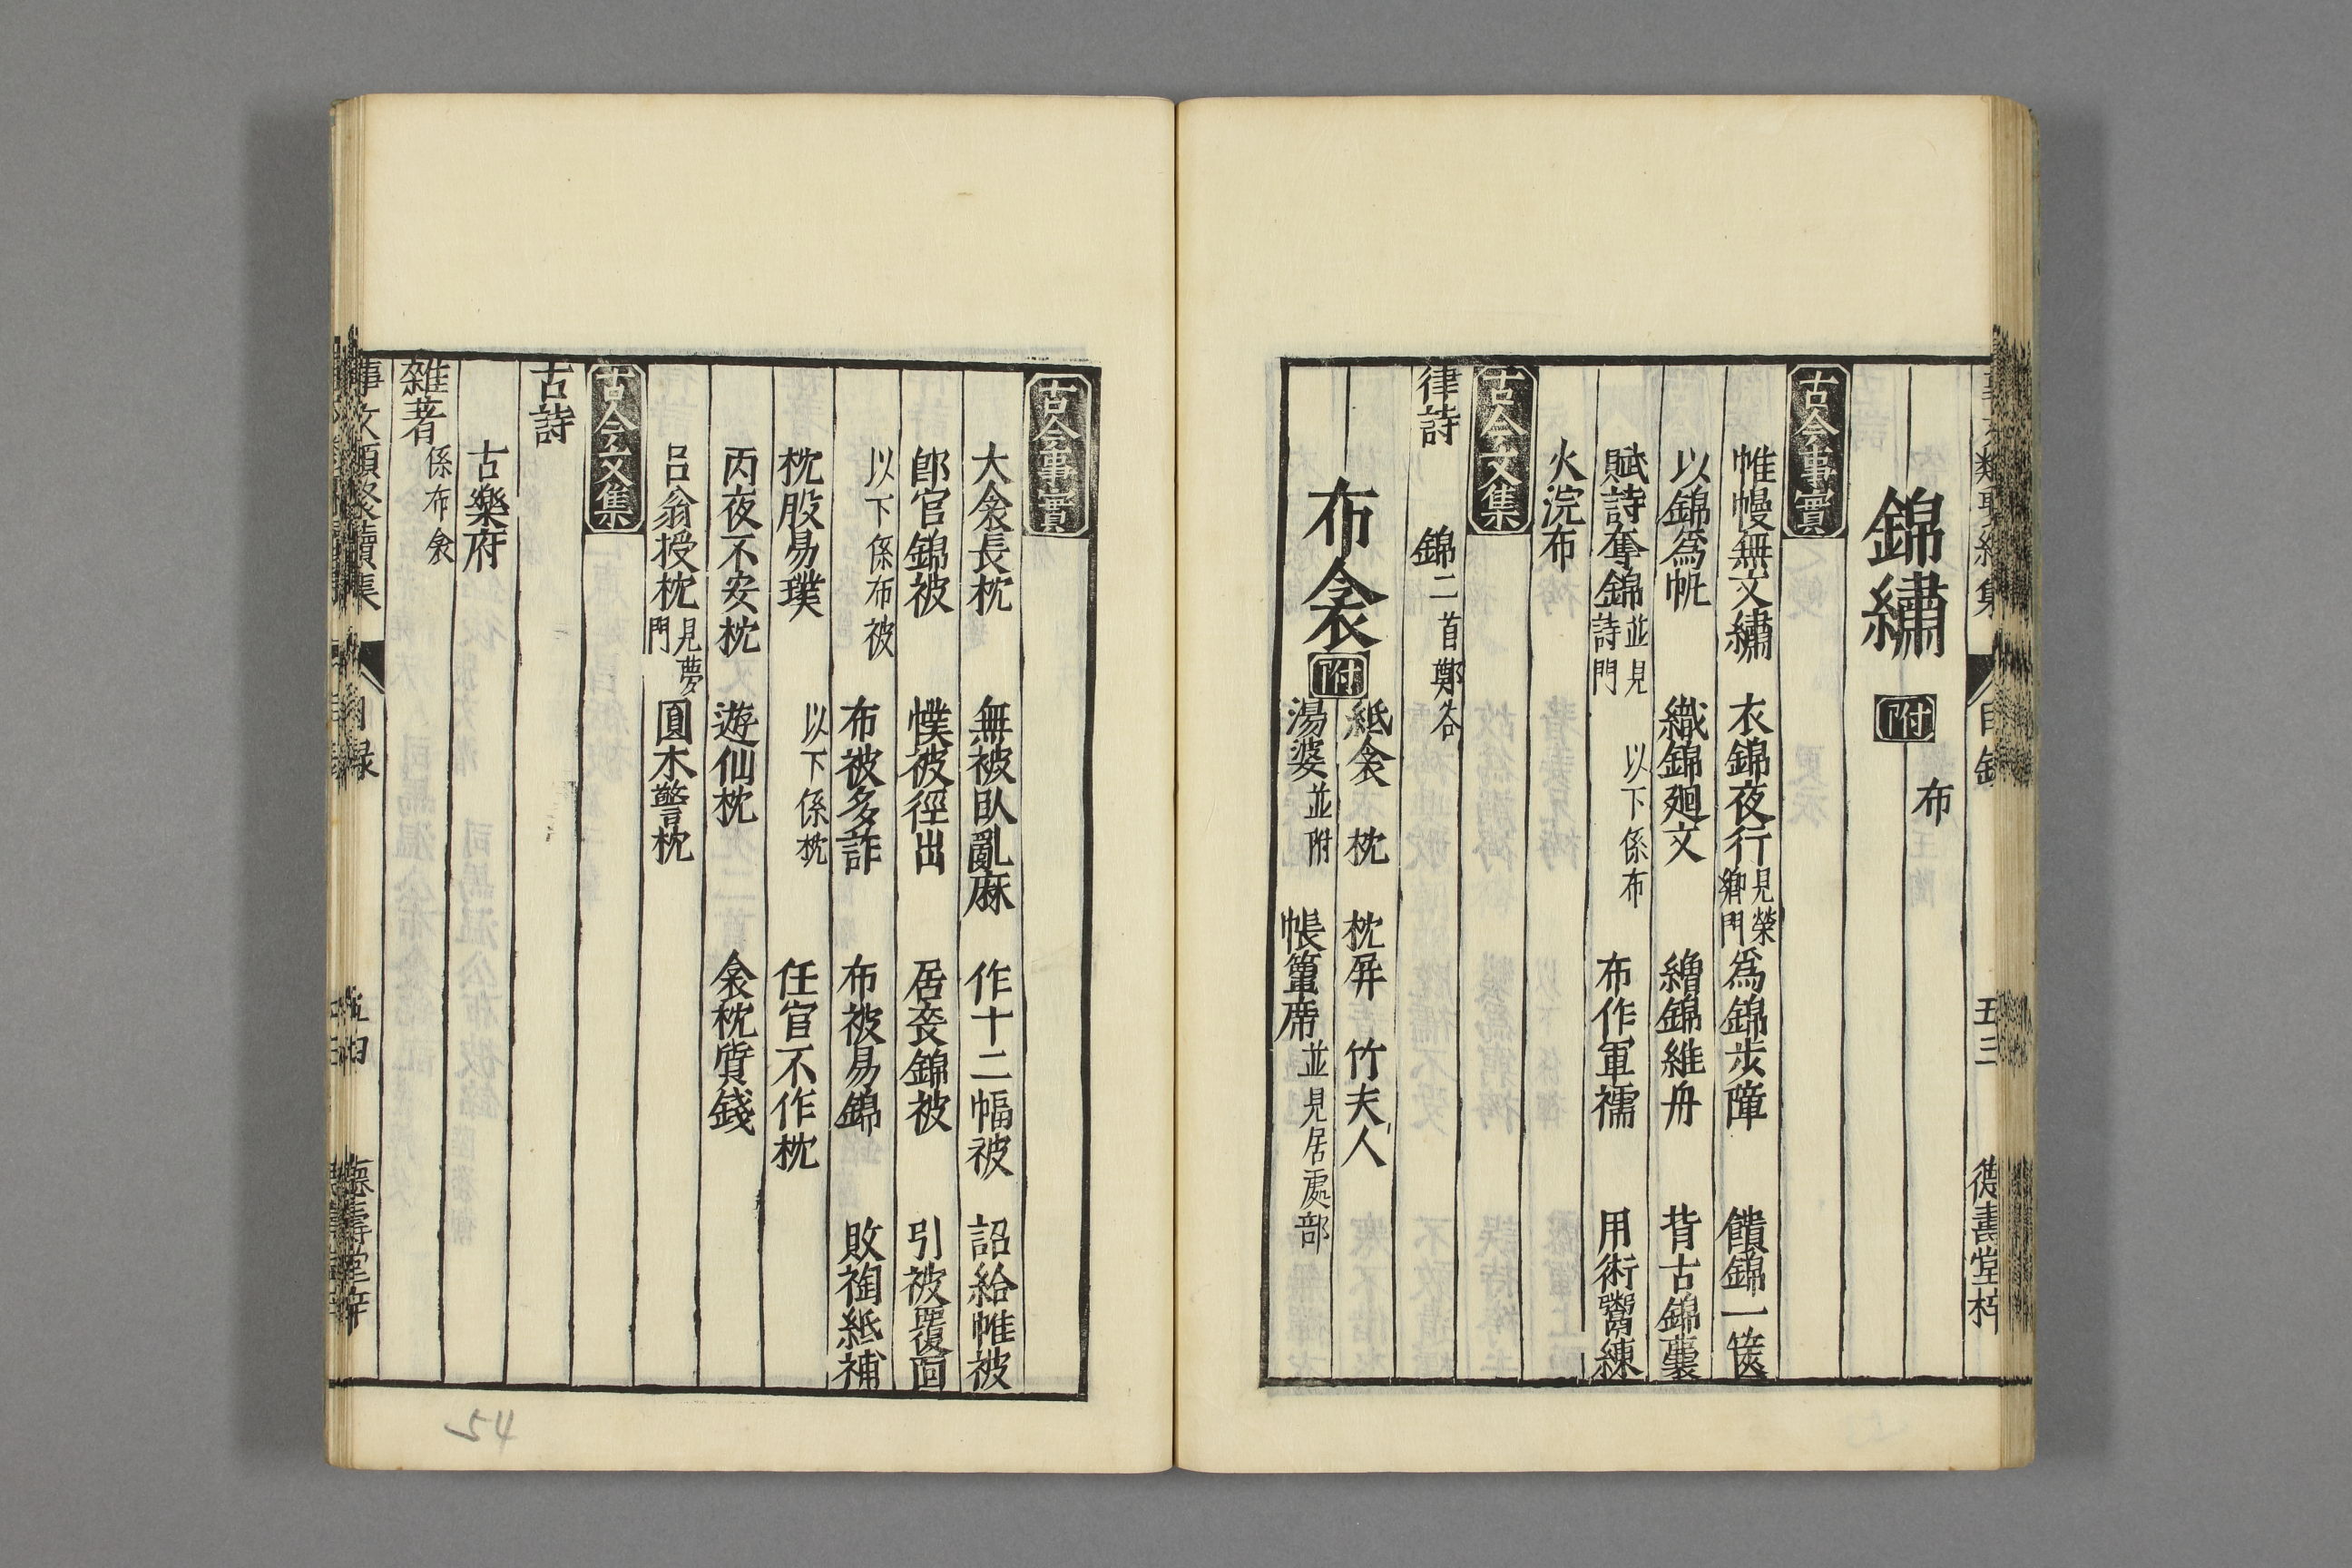 錦繡 附 布
古今事實
帷幔無文繡 衣錦夜行 見榮鄉門 爲錦步障 饋錦一篋
以錦爲帆 織錦廻文 繒錦維舟 背古錦囊
賦詩奪錦 並見詩門 以下係布 布作軍襦 用術鬻練
火浣布
古今文集
律詩
錦二首 鄭谷
布衾 附 紙衾 枕 枕屏 竹夫人
湯婆 並附 帳簟席 並見居處部
目錄 五三 德壽堂梓
古今事實
大衾長枕 無被臥亂麻 作十二幅被 詔給帷被
郎官錦被 襆被徑出 居喪錦被 引被覆面
以下係布被 布被多詐 布被易錦 敗裪紙補
枕股易璞 以下係枕 任官不作枕
丙夜不安枕 遊仙枕 衾枕質錢
呂翁授枕 見夢門 圓木警枕
古今文集
古詩
古樂府
雜著 係布衾
事文類聚續集 目録